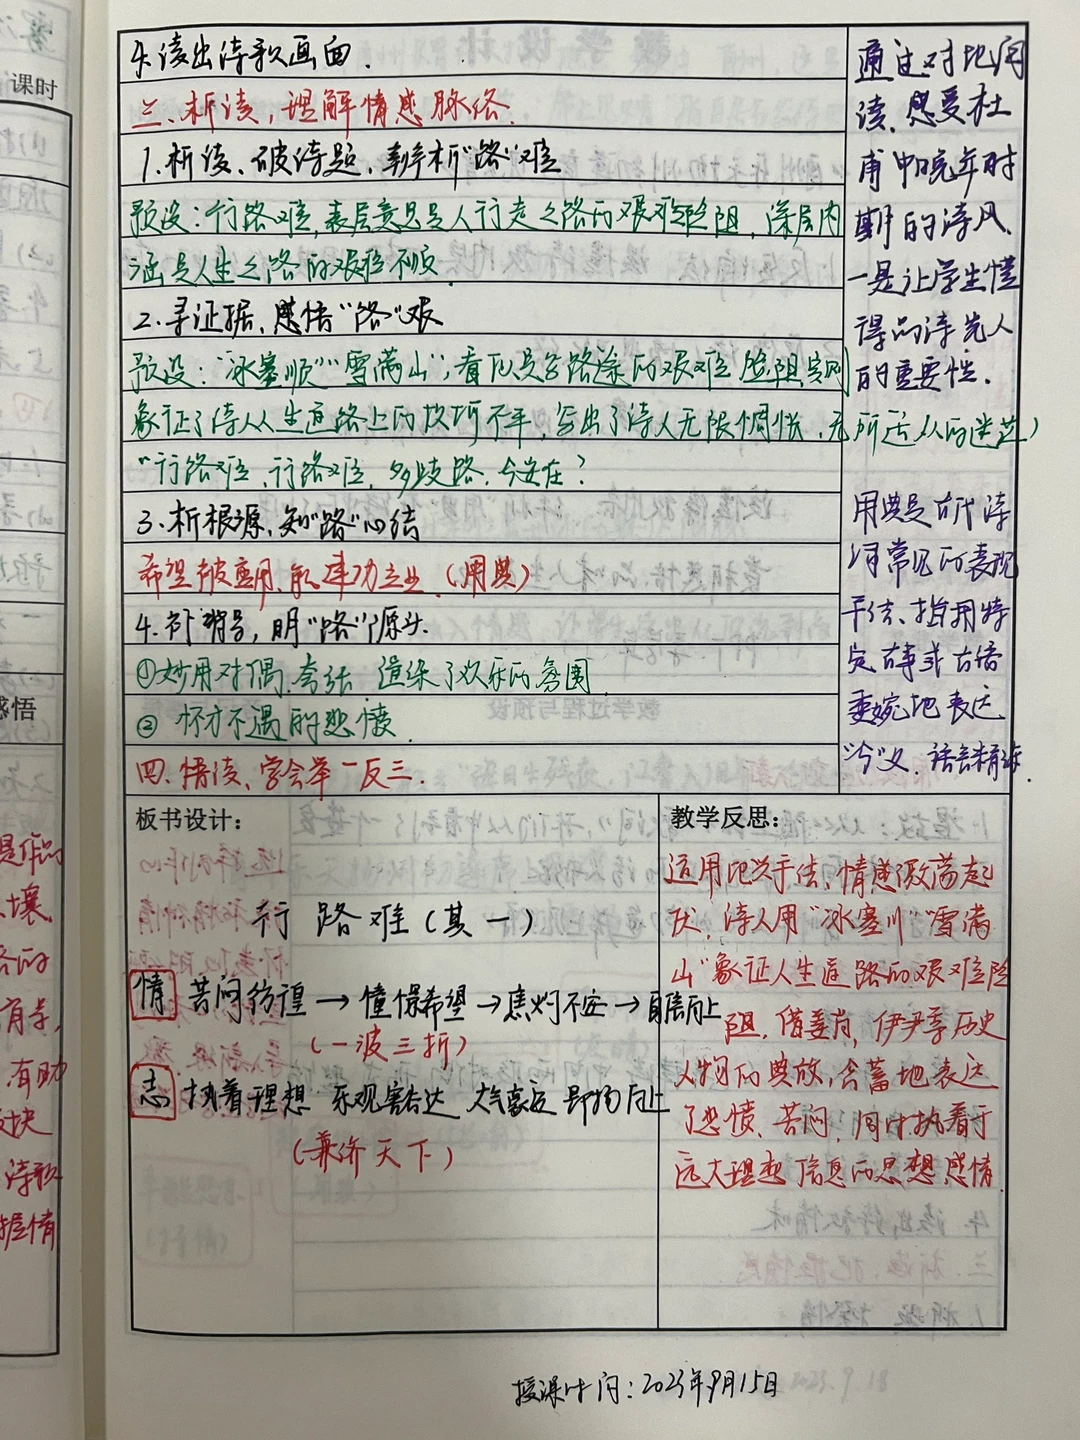 4.读出诗歌画面.
三.析读,理解情感脉络.
1.析读、破诗题,辨析“路”难
预设:行路难,表层意思是人行走之路的艰难险阻,深层内
涵是人生之路的艰险不顺
2.寻证据、感悟“路”艰
预设:“冰塞川”“雪满山”,看似是写路途的艰难险阻实则
象征了诗人人生道路上的坎坷不平,写出了诗人无限惆怅,无所适从的迷茫)
“行路难、行路难,多歧路,今安在?
3.析根源、知“路”心结
希望被重用、能建功立业.(用典)
4.补背景,明“路”源头.
①妙用对偶、夸张,渲染了欢乐的氛围
②怀才不遇的悲愤.
四.情读、学会举一反三.
通过对比阅
读、感受杜
甫中晚年时
期的诗风.
一是让学生懂
得品诗先人
的重要性.
用典是古代诗
词常见的表现
手法、指用特
定故事或古语
委婉地表达
“今”义.语言精练.
板书设计:
行路难(其一)
情 苦闷彷徨→憧憬希望→焦灼不安→自信向上
(一波三折)
志 执着理想 乐观豁达 大气豪迈 昂扬向上
(兼济天下)
教学反思:
运用比兴手法,情感激荡起
伏,诗人用“冰塞川”“雪满
山”象征人生道路的艰难险
阻,借姜尚,伊尹等历史
人物的典故,含蓄地表达
了悲愤、苦闷,同时执着于
远大理想信息的思想感情
授课时间:2023年9月15日
课时
感悟
是作品
土壤
有助
诗歌
握情